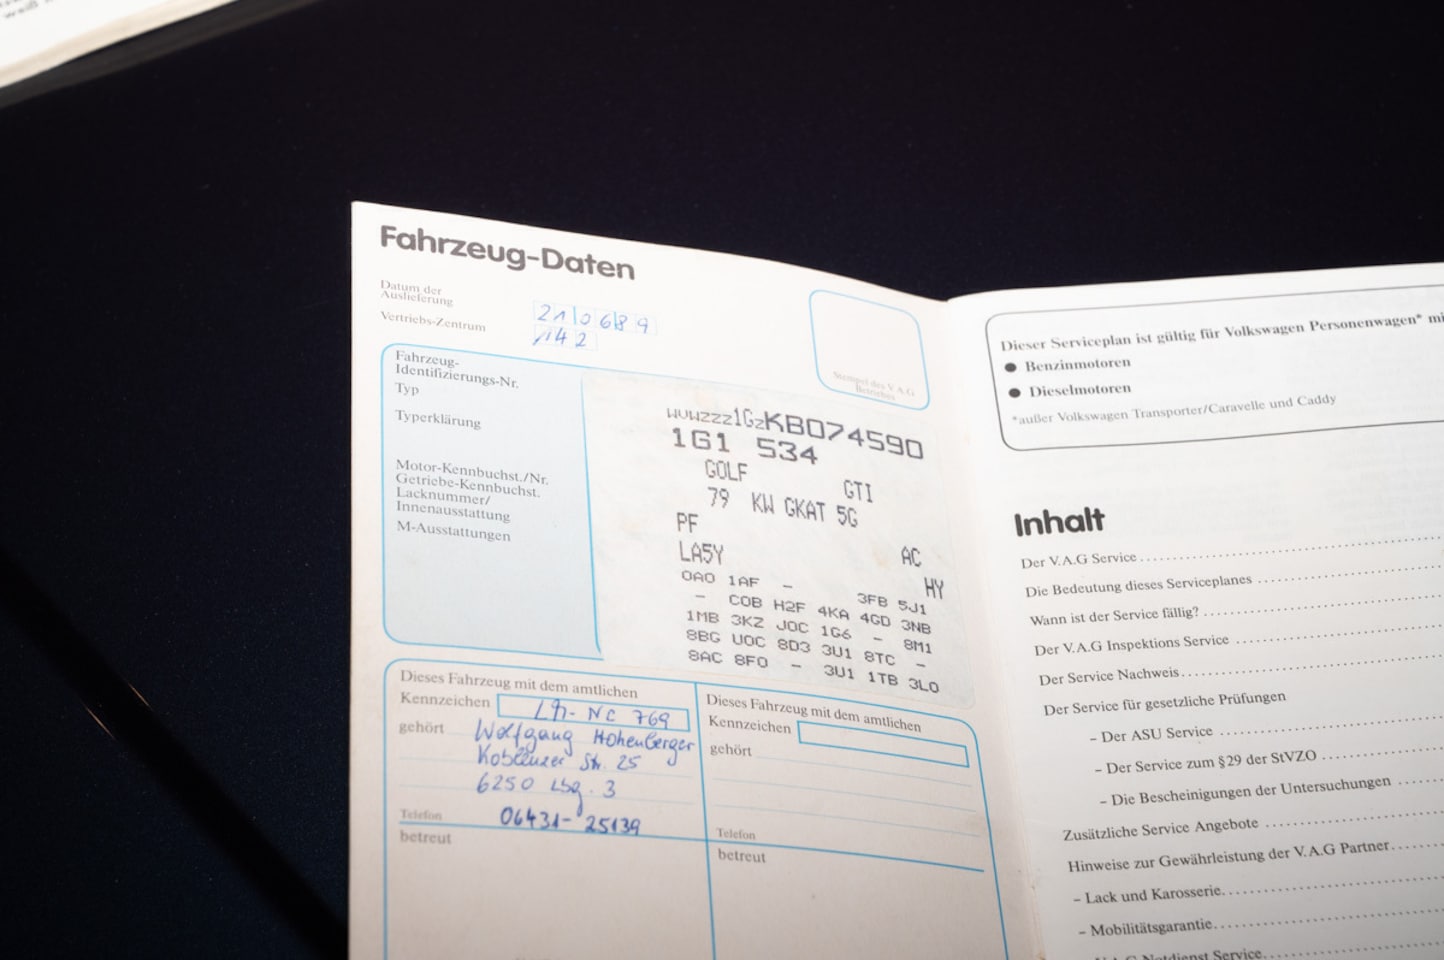 weiß
Fahrzeug-Daten
Datum der
Auslieferung
210689
Vertriebs-Zentrum
142
Stempel des V.A.G
Betriebes
Fahrzeug-
Identifizierungs-Nr.
WVWZZZ1GZKB074590
Typ
1G1 534
Typerklärung
GOLF GTI
79 KW GKAT 5G
Motor-Kennbuchst./Nr.
PF
Getriebe-Kennbuchst.
AC
Lacknummer/
Innenausstattung
LA5Y HY
M-Ausstattungen
0A0 1AF - 3FB 5J1
- C0B H2F 4KA 4GD 3NB
1MB 3KZ J0C 1G6 - 8M1
8BG U0C 8D3 3U1 8TC -
8AC 8F0 - 3U1 1TB 3L0
Dieses Fahrzeug mit dem amtlichen
Kennzeichen LM-NC 769
gehört Wolfgang Hohenberger
Koblenzer Str. 25
6250 Lbg. 3
Telefon 06431-25139
betreut
Dieses Fahrzeug mit dem amtlichen
Kennzeichen
gehört
Telefon
betreut
Dieser Serviceplan ist gültig für Volkswagen Personenwagen* mi
● Benzinmotoren
● Dieselmotoren
*außer Volkswagen Transporter/Caravelle und Caddy
Inhalt
Der V.A.G Service
Die Bedeutung dieses Serviceplanes
Wann ist der Service fällig?
Der V.A.G Inspektions Service
Der Service Nachweis
Der Service für gesetzliche Prüfungen
– Der ASU Service
– Der Service zum § 29 der StVZO
– Die Bescheinigungen der Untersuchungen
Zusätzliche Service Angebote
Hinweise zur Gewährleistung der V.A.G Partner
– Lack und Karosserie
– Mobilitätsgarantie
– V.A.G Notdienst Service